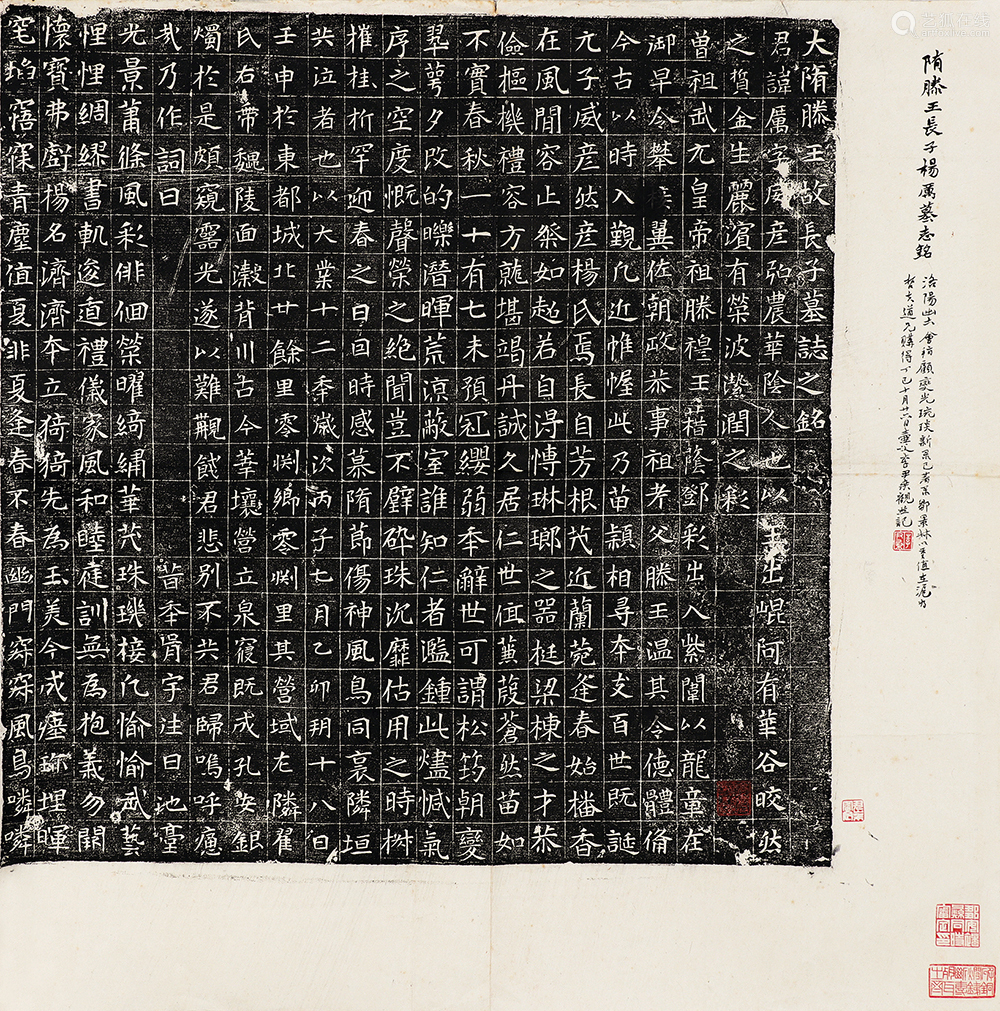 隋滕王長子楊厲墓志銘
大隋滕王故長子墓誌之銘
君諱厲字威彥弘農華陰人也以玉出崐阿有華谷皎然
之質金生麗濱有榮波瀅潤之彩
曾祖武元皇帝祖滕穆王藉蔭鄧彩出入紫闈以龍章在
御早令攀 翼佐朝政恭事祖考父滕王温其令德體備
今古以時入覲凡近惟幄此乃苗穎相尋本支百世既誕
元子威彥然彥楊氏焉長自芳根茂近蘭菀逢春始播香
在風聞容止粲如趂若自淂博琳瑯之器挺梁棟之才恭
儉樞機禮容方就堪竭丹誠久居仁世值蒹葭蒼然苗如
不實春秋一十有七未預冠纓弱年辭世可謂松筠朝變
翠萼夕改的皪潛暉荒涼蔽室誰知仁者濫鍾此燼慽氣
序之空度慨聲榮之絕聞豈不璧碎珠沉靡估用之時樹
摧桂折罕迎春之日日時感慕隋節傷神風鳥同哀隣垣
共泣者也以大業十二秊歲次丙子七月乙卯玥十八日
壬申於東都城北廿餘里零渕鄉零渕里其營域左隣翟
氏右帶魏陵面瀔背川古今華壤營立泉寢既成孔安銀
燭於是頗窺靈光遂以難觀餞君悲別不共君歸嗚呼痛
哉乃作詞曰
皆秊胥宇注曰地臺
光景蕭條風彩俳佪榮曜綺繡華茂珠璣接凡愉愉武藝
悝悝綢繆書軌逡逎禮儀家風和睦徒訓無為抱義勿闚
懷寶弗虧楊名濟濟本立猗猗先為玉美今成塵 埋暉
窀埳窹寐青壟值夏非夏逢春不春幽門 風鳥嘹嘹